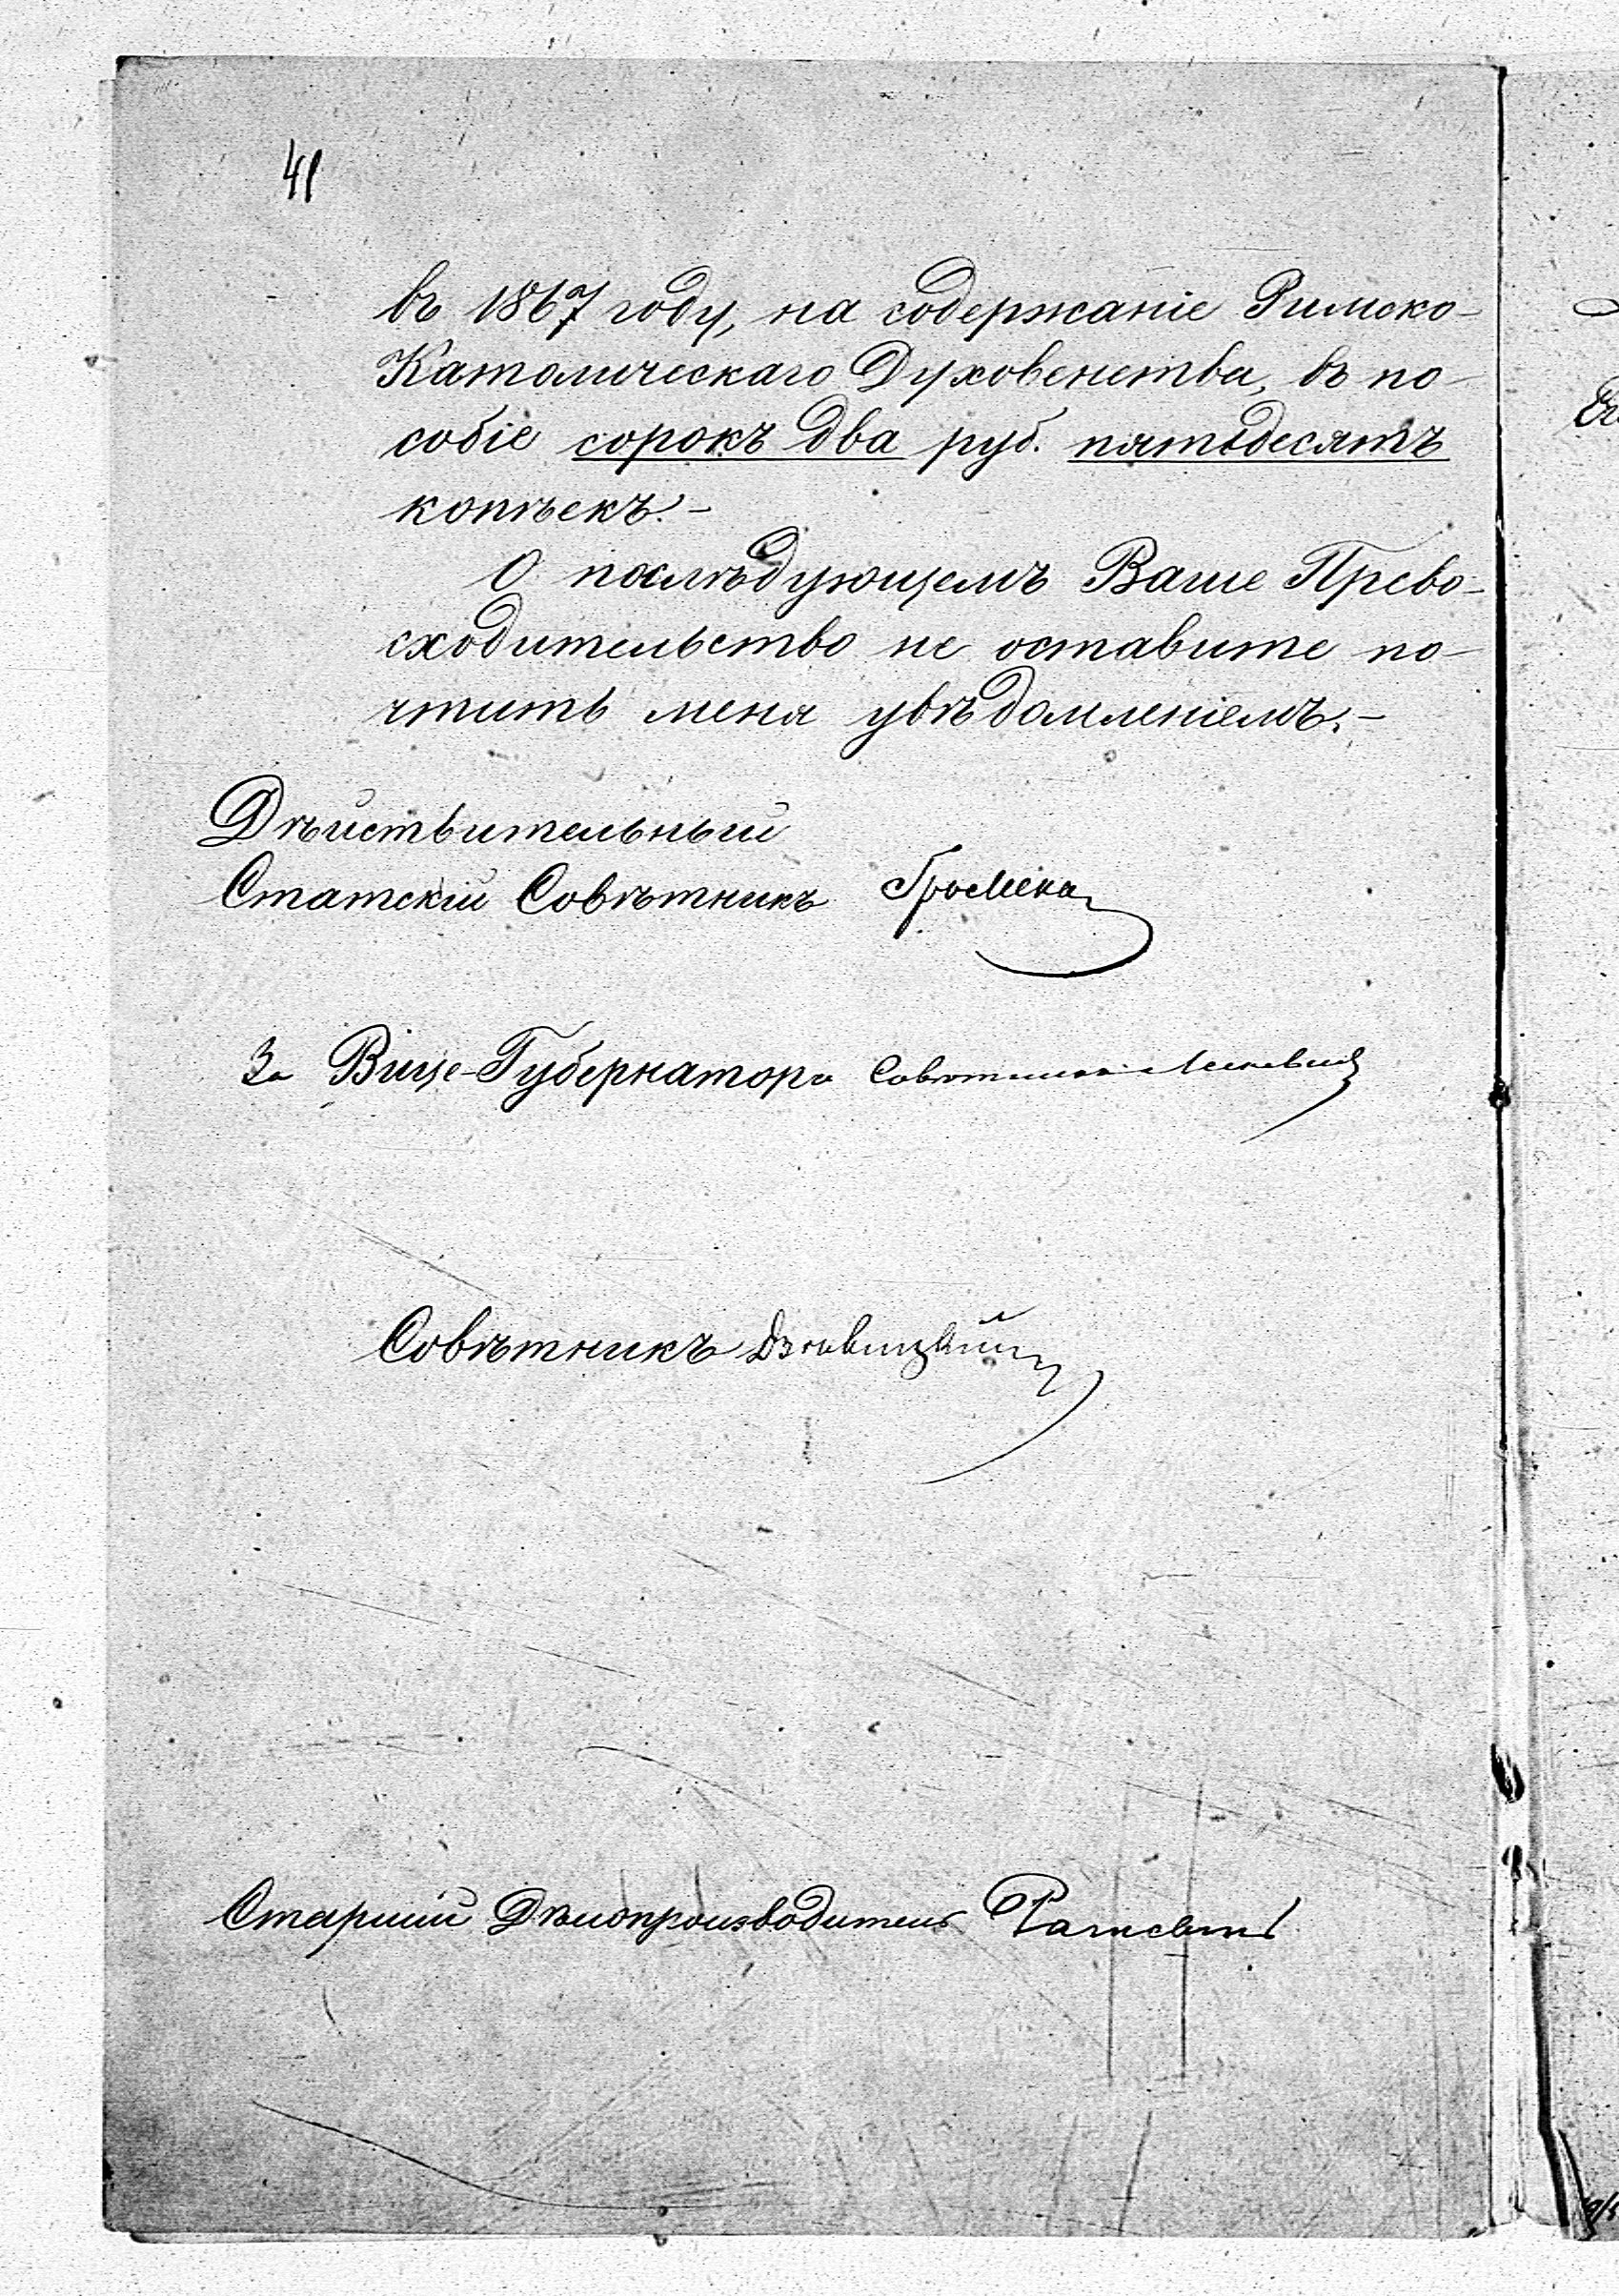 41
въ 1867 году, на содержаніе Римско-
Католическаго Духовенства, въ по-
собіе сорокъ два руб. пятьдесятъ
копѣекъ.-
О послѣдующемъ Ваше Прево-
сходительство не оставите по-
чтить меня увѣдомленіемъ.-
Дѣйствительный
Статскій Совѣтникъ Громека
За Вице-Губернатора Совѣтникъ
Совѣтникъ
Старшій Дѣлопроизводитель